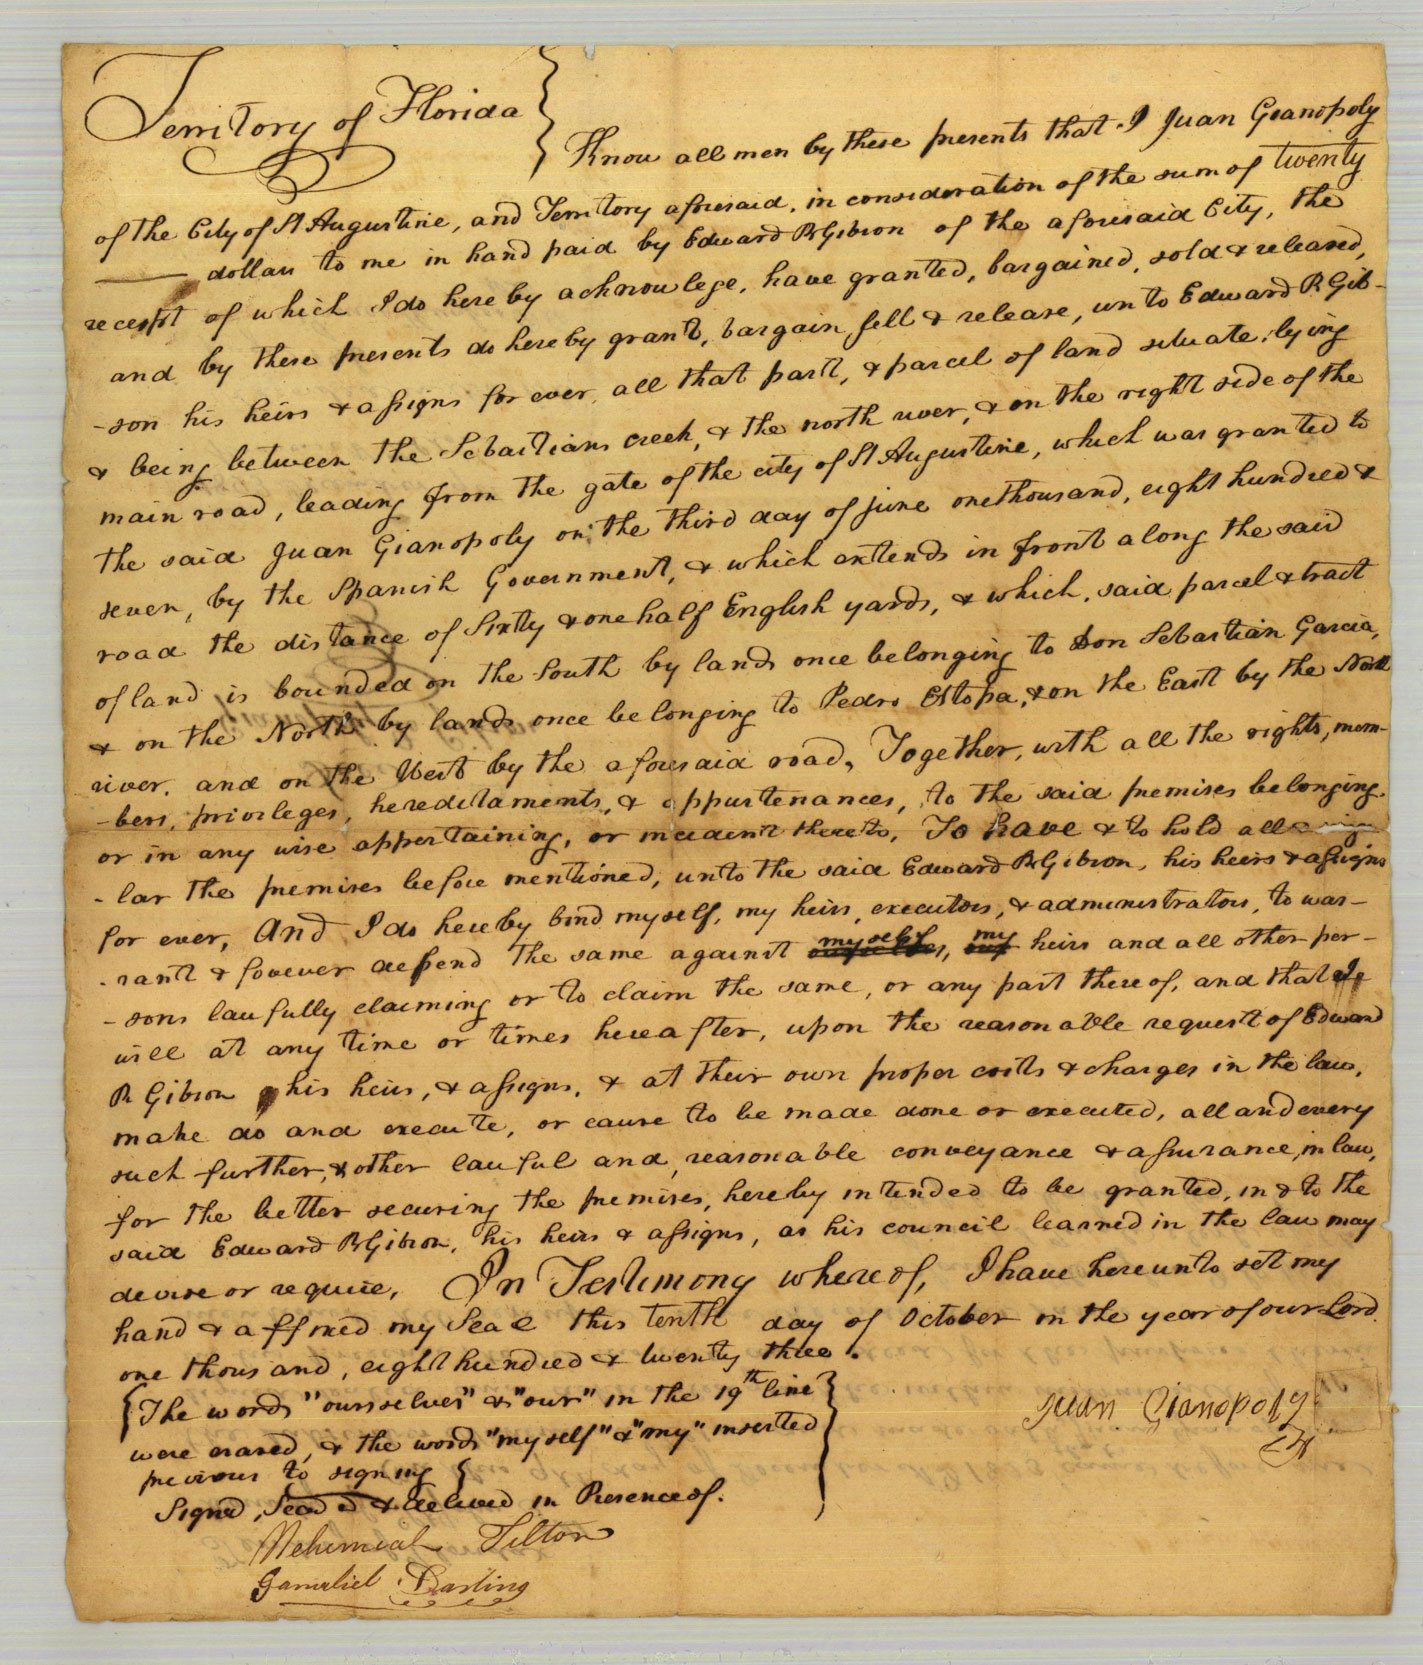 Territory of Florida
Know all men by these presents that I Juan Gianopoly
of the City of St Augustine, and Territory aforesaid, in consideration of the sum of twenty
dollars to me in hand paid by Edward R Gibson of the aforesaid City, the
receipt of which I do hereby acknowlege, have granted, bargained, sold & released,
and by these presents do hereby grant, bargain, sell & release, unto Edward R Gib-
-son his heirs & assigns for ever, all that part, & parcel of land situate, lying
& being between the Sebastians creek, & the north river, & on the right side of the
main road, leading from the gate of the city of St Augustine, which was granted to
the said Juan Gianopoly on the third day of june one thousand, eight hundred &
seven, by the Spanish Government, & which extends in front along the said
road the distance of Sixty & one half English yards, & which, said parcel & tract
of land is bounded on the South by lands once belonging to Don Sebastian Garcia,
& on the North by lands once belonging to Pedro Estopa, & on the East by the North
river, and on the West by the aforesaid road, Together, with all the rights, mem-
-bers, privileges, hereditaments, & appurtenances, to the said premises belonging,
or in any wise appertaining, or incident thereto, To have & to hold all &
-lar the premises before mentioned, unto the said Edward R Gibson, his heirs & assigns
for ever, And I do hereby bind myself, my heirs, executors, & administrators, to war-
-rant & forever defend the same against myself, my heirs and all other per-
-sons lawfully claiming or to claim the same, or any part thereof, and that I
will at any time or times hereafter, upon the reasonable request of Edward
R Gibson his heirs, & assigns, & at their own proper costs & charges in the law,
make do and execute, or cause to be made done or executed, all and every
such further, & other lawful and reasonable conveyance & assurance, in law,
for the better securing the premises, hereby intended to be granted, in & to the
said Edward R Gibson, his heirs & assigns, as his council learned in the law may
devise or require, In Testimony whereof, I have hereunto set my
hand & affixed my Seal this tenth day of October in the year of our Lord
one thousand, eight hundred & twenty three.
The words "ourselves" & "our" in the 19th line
were erased, & the words "myself" & "my" inserted
previous to signing
Juan Gianopoly
Signed, Sealed & delivered in Presence of.
Nehemiah Tilton
Gamaliel Darling